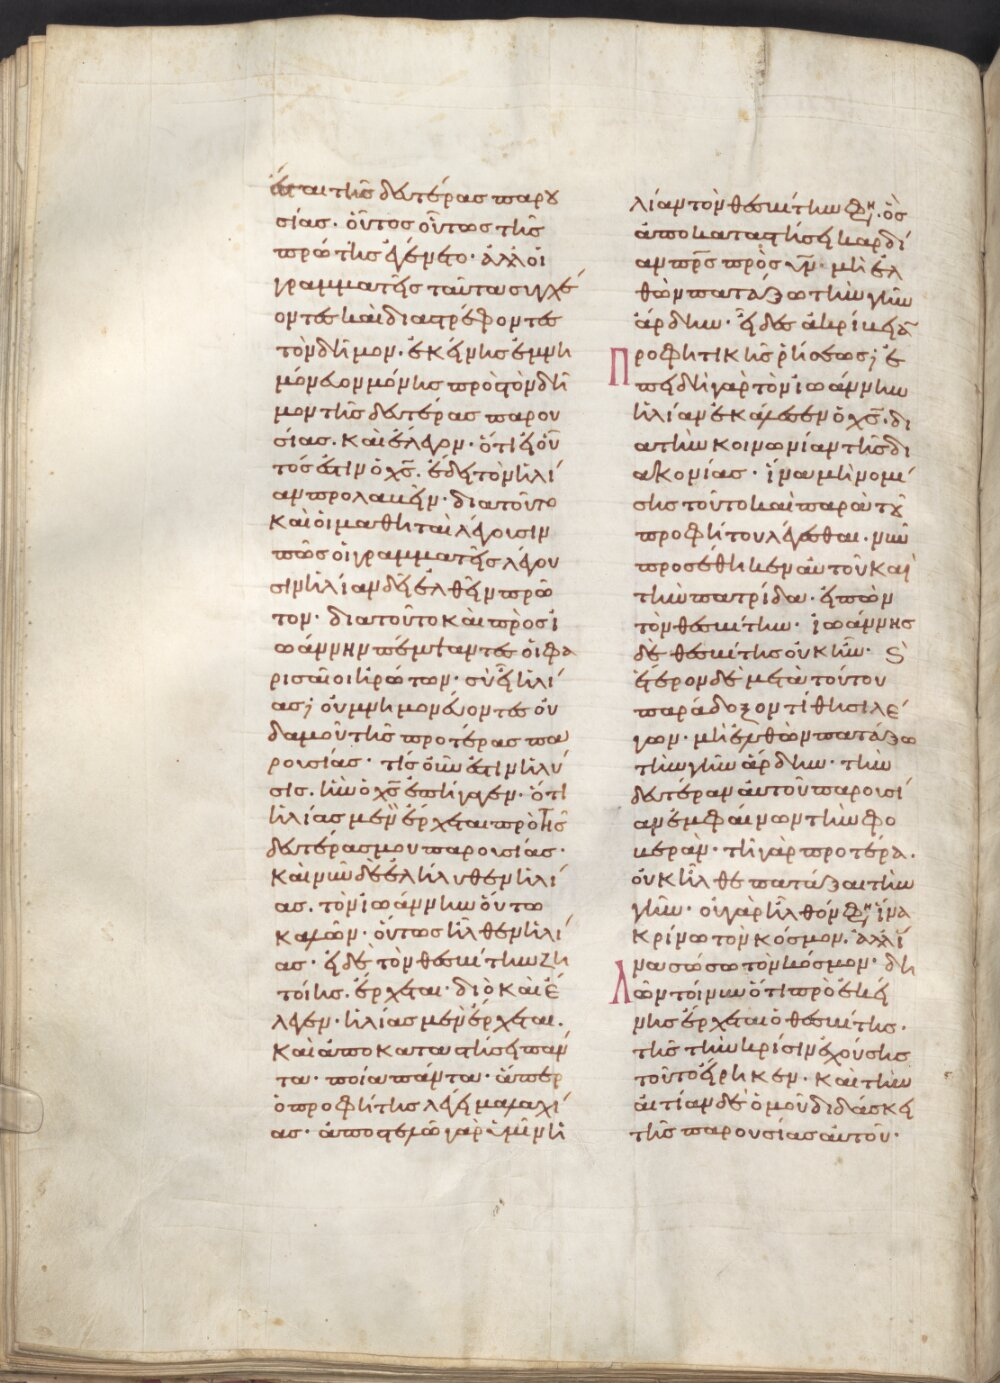 έσται τῆς δευτέρας παρου
σίας. οὗτος οὕτως τῆς
πρώτης ἐγένετο· ἀλλ οἱ
γραμματεῖς ταῦτα συγχέ
οντες καὶ διαστρέφοντες
τὸν δῆμον. ἐκείνης ἐμνη
μόνευον μόνης πρὸς τὸν δῆ
μον τῆς δευτέρας παρου
σίας. καὶ ἔλεγον· ὅτι εἰ οὗ
τός ἐστιν ὁ χς. ἔδει τὸν ἡλί
αν προλαβεῖν· διατοῦτο
καὶ οἱ μαθηταὶ λέγουσιν
πῶς οἱ γραμματεῖς λέγου
σιν ἡλίαν δεῖ ἐλθεῖν πρῶ
τον· διατοῦτο καὶ πρὸς ἰ
ωάννην πέμψαντες οἱ φα
ρισαῖοι ἠρώτων· σὺ εἶ ἡλί
ας; οὐ μνημονεύοντες οὐ
δαμοῦ τῆς προτέρας πα
ρουσίας· τίς οὖν ἐστιν ἡ λύ
σις. ἣν ὁ χς ἐπήγαγεν· ὅτι
ἡλίας μὲν ἔρχεται πρὸ τῆς
δευτέρας μου παρουσίας·
καὶ νῦν δὲ ἐλήλυθεν ἡλί
ας. τὸν ἰωάννην οὕτω
καλῶν· οὗτος ἦλθεν ἡλί
ας· εἰ δὲ τὸν θεσβίτην ζη
τοίης. ἔρχεται· διὸ καὶ ἔ
λεγεν· ἡλίας μὲν ἔρχεται.
καὶ ἀποκαταστήσει πάν
τα· ποῖα πάντα· ἅπερ
ὁ προφήτης λέγει μαλαχί
ας· ἀποστελῶ γὰρ ὑμῖν ἡ
λίαν τὸν θεσβίτην φη· ὃς
ἀποκαταστήσει καρδί
αν πρς πρὸς υν· μὴ ἐλ
θὼν πατάξω τὴν γῆν
ἄρδην· εἶδες ἀκρίβεια
προφητικῆς ῥήσεως; ἐ
πειδὴ γὰρ τὸν ἰωάννην
ἡλίαν ἐκάλεσεν ὁ χς. δι
α τὴν κοινωνίαν τῆς δι
ακονίας· ἵνα μὴ νομί
σῃς τοῦτο καὶ παρὰ τοῦ
προφήτου λέγεσθαι. νῦν
προσέθηκεν αὐτοῦ καὶ
τὴν πατρίδα· εἰπὼν
τὸν θεσβίτην· ἰωάννης
δὲ θεσβίτης οὐκ ἦν·
ἕτερον δὲ μετὰ τούτου
παράδοξον τίθησι λέ
γων· μὴ ἐλθὼν πατάξω
τὴν γῆν ἄρδην· τὴν
δευτέραν αὐτοῦ παρουσί
αν ἐμφαίνων τὴν φο
βεράν· τῇ γὰρ προτέρᾳ.
οὐκ ἦλθε πατάξαι τὴν
γῆν· οὐ γὰρ ἦλθόν φη ἵνα
κρίνω τὸν κόσμον. ἀλλ ἵ
να σώσω τὸν κόσμον· δη
λῶν τοίνυν ὅτι πρὸ ἐκεί
νης ἔρχεται ὁ θεσβίτης.
τῆς τὴν κρίσιν ἐχούσης
τοῦτο εἴρηκεν· καὶ τὴν
αἰτίαν δὲ ὁμοῦ διδάσκει
τῆς παρουσίας αὐτοῦ·